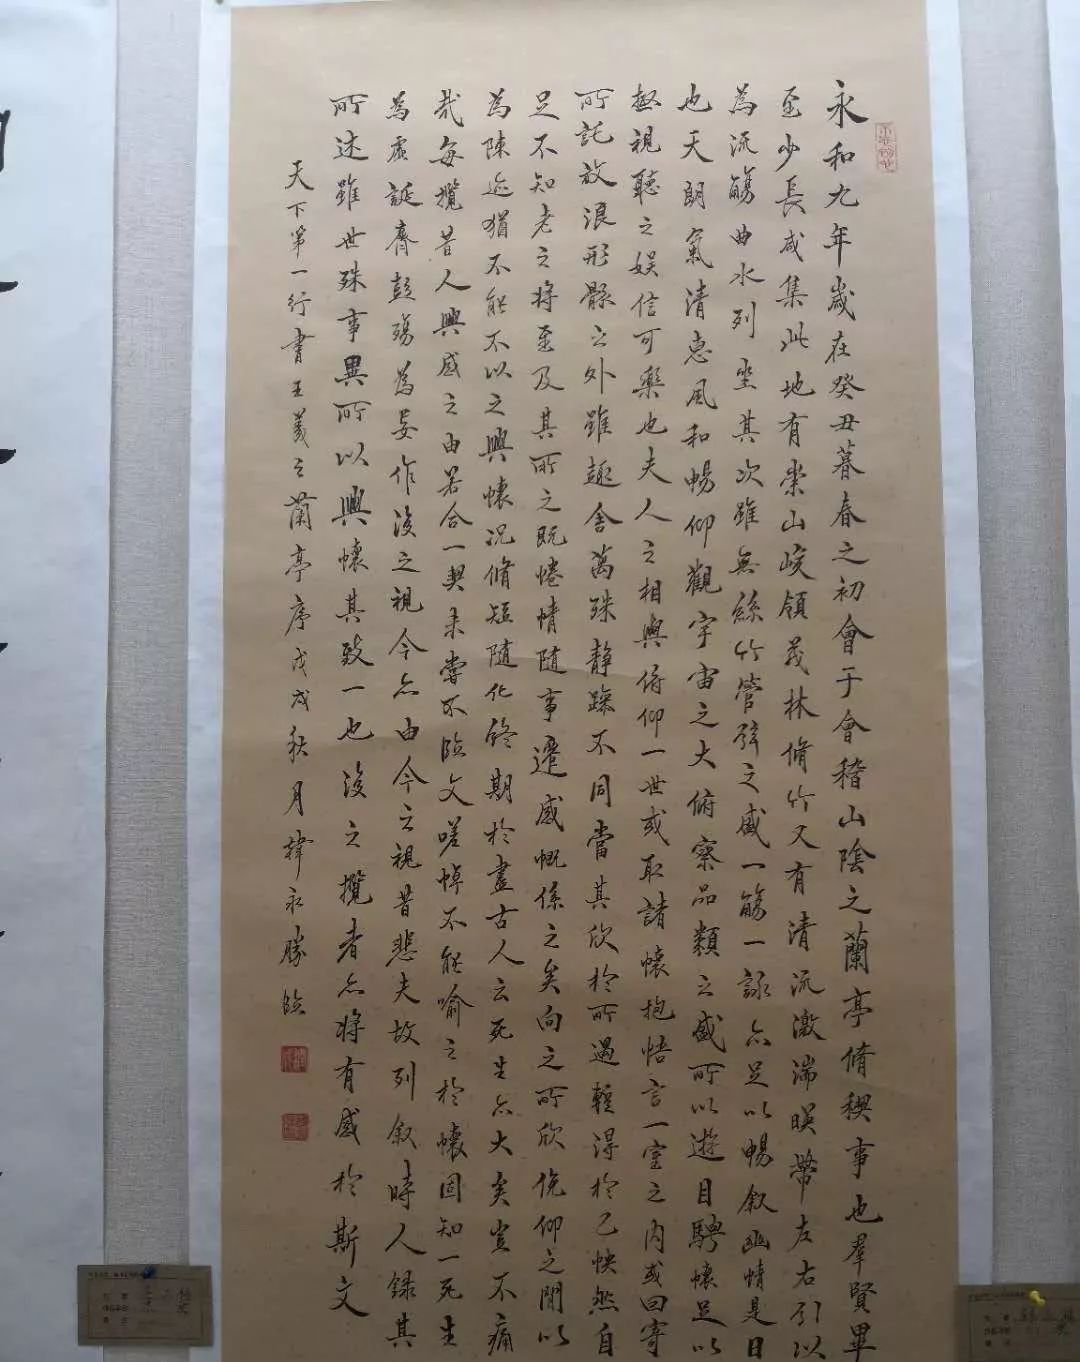 永和九年歲在癸丑暮春之初會于會稽山陰之蘭亭脩稧事也羣賢畢
至少長咸集此地有崇山峻領茂林脩竹又有清流激湍暎帶左右引以
為流觴曲水列坐其次雖無絲竹管弦之盛一觴一詠亦足以暢叙幽情是日
也天朗氣清惠風和暢仰觀宇宙之大俯察品類之盛所以遊目騁懷足以
極視聽之娛信可樂也夫人之相與俯仰一世或取諸懷抱悟言一室之內或曰寄
所託放浪形骸之外雖趣舍萬殊静躁不同當其欣於所遇輕得於己怏然自
足不知老之將至及其所之既惓情隨事遷感慨係之矣向之所欣俛仰之閒以
為陳迹猶不能不以之興懷况脩短隨化終期於盡古人云死生亦大矣豈不痛
哉每攬昔人興感之由若合一契未嘗不臨文嗟悼不能喻之於懷固知一死生
為虛誕齊彭殤為妄作後之視今亦由今之視昔悲夫故列叙時人録其
所述雖世殊事異所以興懷其致一也後之攬者亦將有感於斯文
天下第一行書王羲之蘭亭序戊戌秋月韓永勝臨